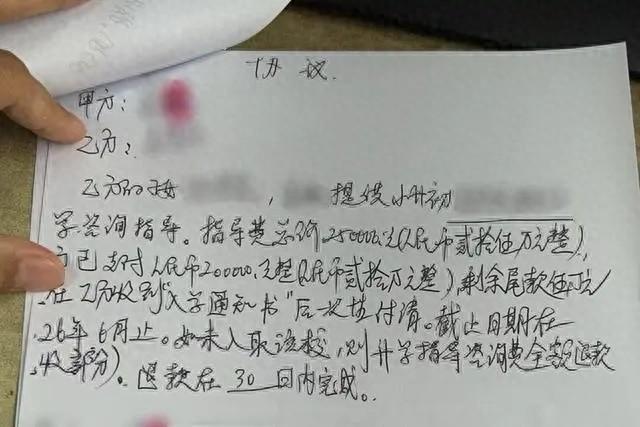 协议
甲方：
乙方：
乙方向 ， 提供小升初
学咨询指导。指导费总额250000.元(人民币贰拾伍万元整),
方已支付人民币200000.元整(人民币贰拾万元整),剩余尾款伍万元
在乙方收到"入学通知书"后一次性付清。截止日期在
26年6月止。如未入取该校,则升学指导咨询费全额退款
收部分)。退款在30日内完成。